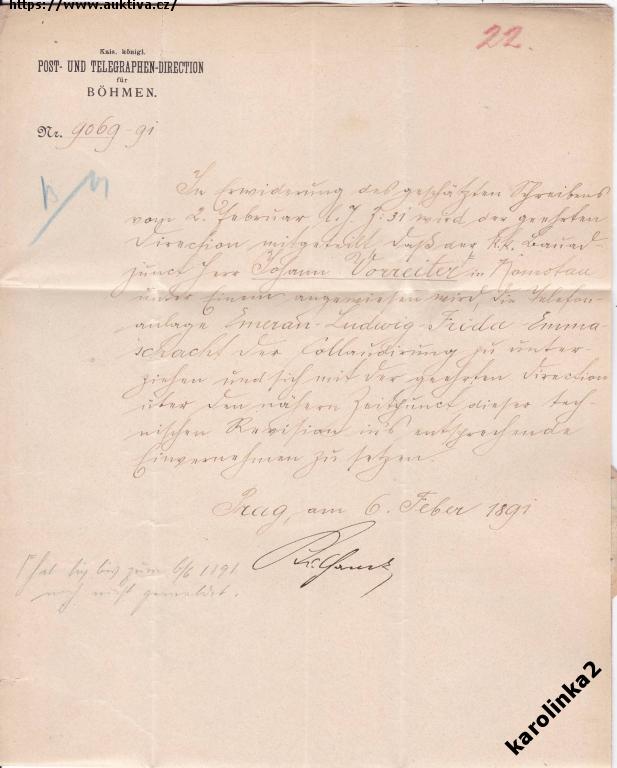 https://www.auktiva.cz/
22.
Kais. königl.
POST- UND TELEGRAPHEN-DIRECTION
für
BÖHMEN.
Nr. 9069-91
In Erwiderung des geschätzten Schreibens
vom 2. Februar l. J. Z: 31 wird der geehrten
Direction mitgeteilt daß der k.k. Bauad-
junct Herr Johann Vorreiter in Komotau
unter Einem angewiesen wird, die Telefon-
anlage Emeran-Ludwig-Frida-Emma-
schacht der Collaudirung zu unter-
ziehen und sich mit der geehrten Direction
über den nähern Zeitpunct dieser tech-
nischen Revision in's entsprechende
Einvernehmen zu setzen.
Prag, am 6. Feber 1891
hat sich bis zum 6/6 1891
noch nicht gemeldet.
karolinka2